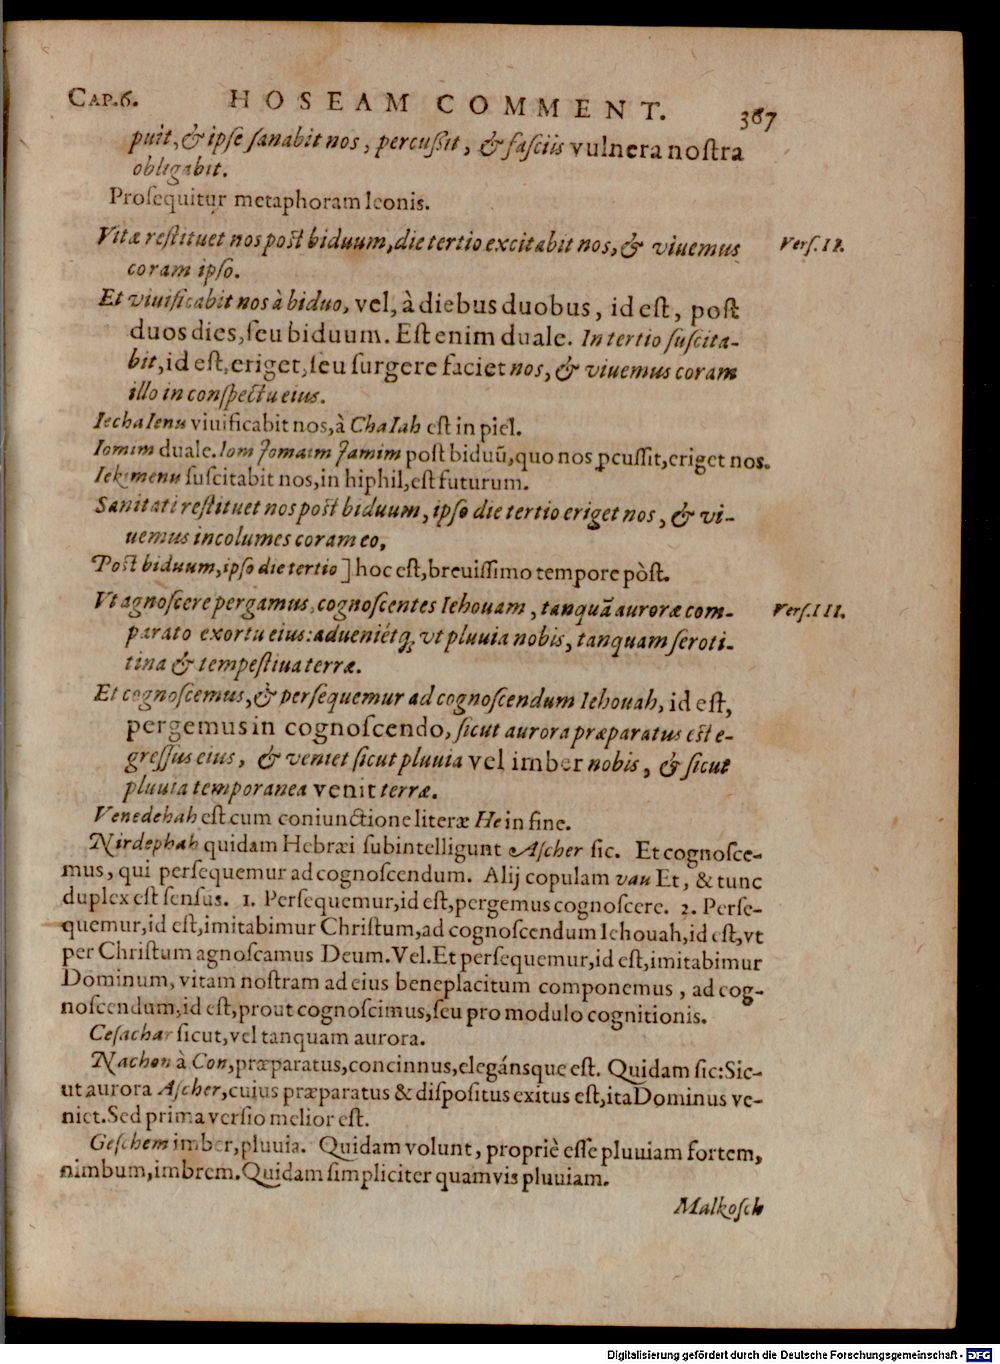 CAP.6. HOSEAM COMMENT. 367
puit, & ipse sanabit nos, percußit, & fasciis vulnera nostra
obligabit.
Prosequitur metaphoram leonis.
Vitæ restituet nos post biduum, die tertio excitabit nos, & viuemus Vers. II.
coram ipso.
Et viuificabit nos à biduo, vel, à diebus duobus, id est, post
duos dies, seu biduum. Est enim duale. In tertio suscita-
bit, id est, eriget, seu surgere faciet nos, & viuemus coram
illo in conspectu eius.
Iechaienu viuificabit nos, à Chaiah est in piel.
Iomim duale. Iom Jomaim Jamim post biduũ, quo nos ꝑcussit, eriget nos.
Iekimenu suscitabit nos, in hiphil, est futurum.
Sanitati restituet nos post biduum, ipso die tertio eriget nos, & vi-
uemus incolumes coram eo,
Post biduum, ipso die tertio] hoc est, breuissimo tempore pòst.
Vt agnoscere pergamus, cognoscentes Iehouam, tanquã auroræ com- Vers. III.
parato exortu eius: adueniétq; vt pluuia nobis, tanquam seroti-
tina & tempestiua terræ.
Et cognoscemus, & persequemur ad cognoscendum Iehouah, id est,
pergemus in cognoscendo, sicut aurora præparatus est e-
gressus eius, & veniet sicut pluuia vel imber nobis, & sicut
pluuia temporanea venit terræ.
Venedehah est cum coniunctione literæ He in fine.
Nirdephah quidam Hebræi subintelligunt Ascher sic. Et cognosce-
mus, qui persequemur ad cognoscendum. Alij copulam vau Et, & tunc
duplex est sensus. 1. Persequemur, id est, pergemus cognoscere. 2. Perse-
quemur, id est, imitabimur Christum, ad cognoscendum Iehouah, id est, vt
per Christum agnoscamus Deum. Vel. Et persequemur, id est, imitabimur
Dominum, vitam nostram ad eius beneplacitum componemus, ad cog-
noscendum, id est, prout cognoscimus, seu pro modulo cognitionis.
Cesachar sicut, vel tanquam aurora.
Nachon à Con, præparatus, concinnus, elegánsque est. Quidam sic: Sic-
ut aurora Ascher, cuius præparatus & dispositus exitus est, ita Dominus ve-
niet. Sed prima versio melior est.
Geschem imber, pluuia. Quidam volunt, propriè esse pluuiam fortem,
nimbum, imbrem. Quidam simpliciter quamvis pluuiam.
Malkosch
Digitalisierung gefördert durch die Deutsche Forschungsgemeinschaft - DFG